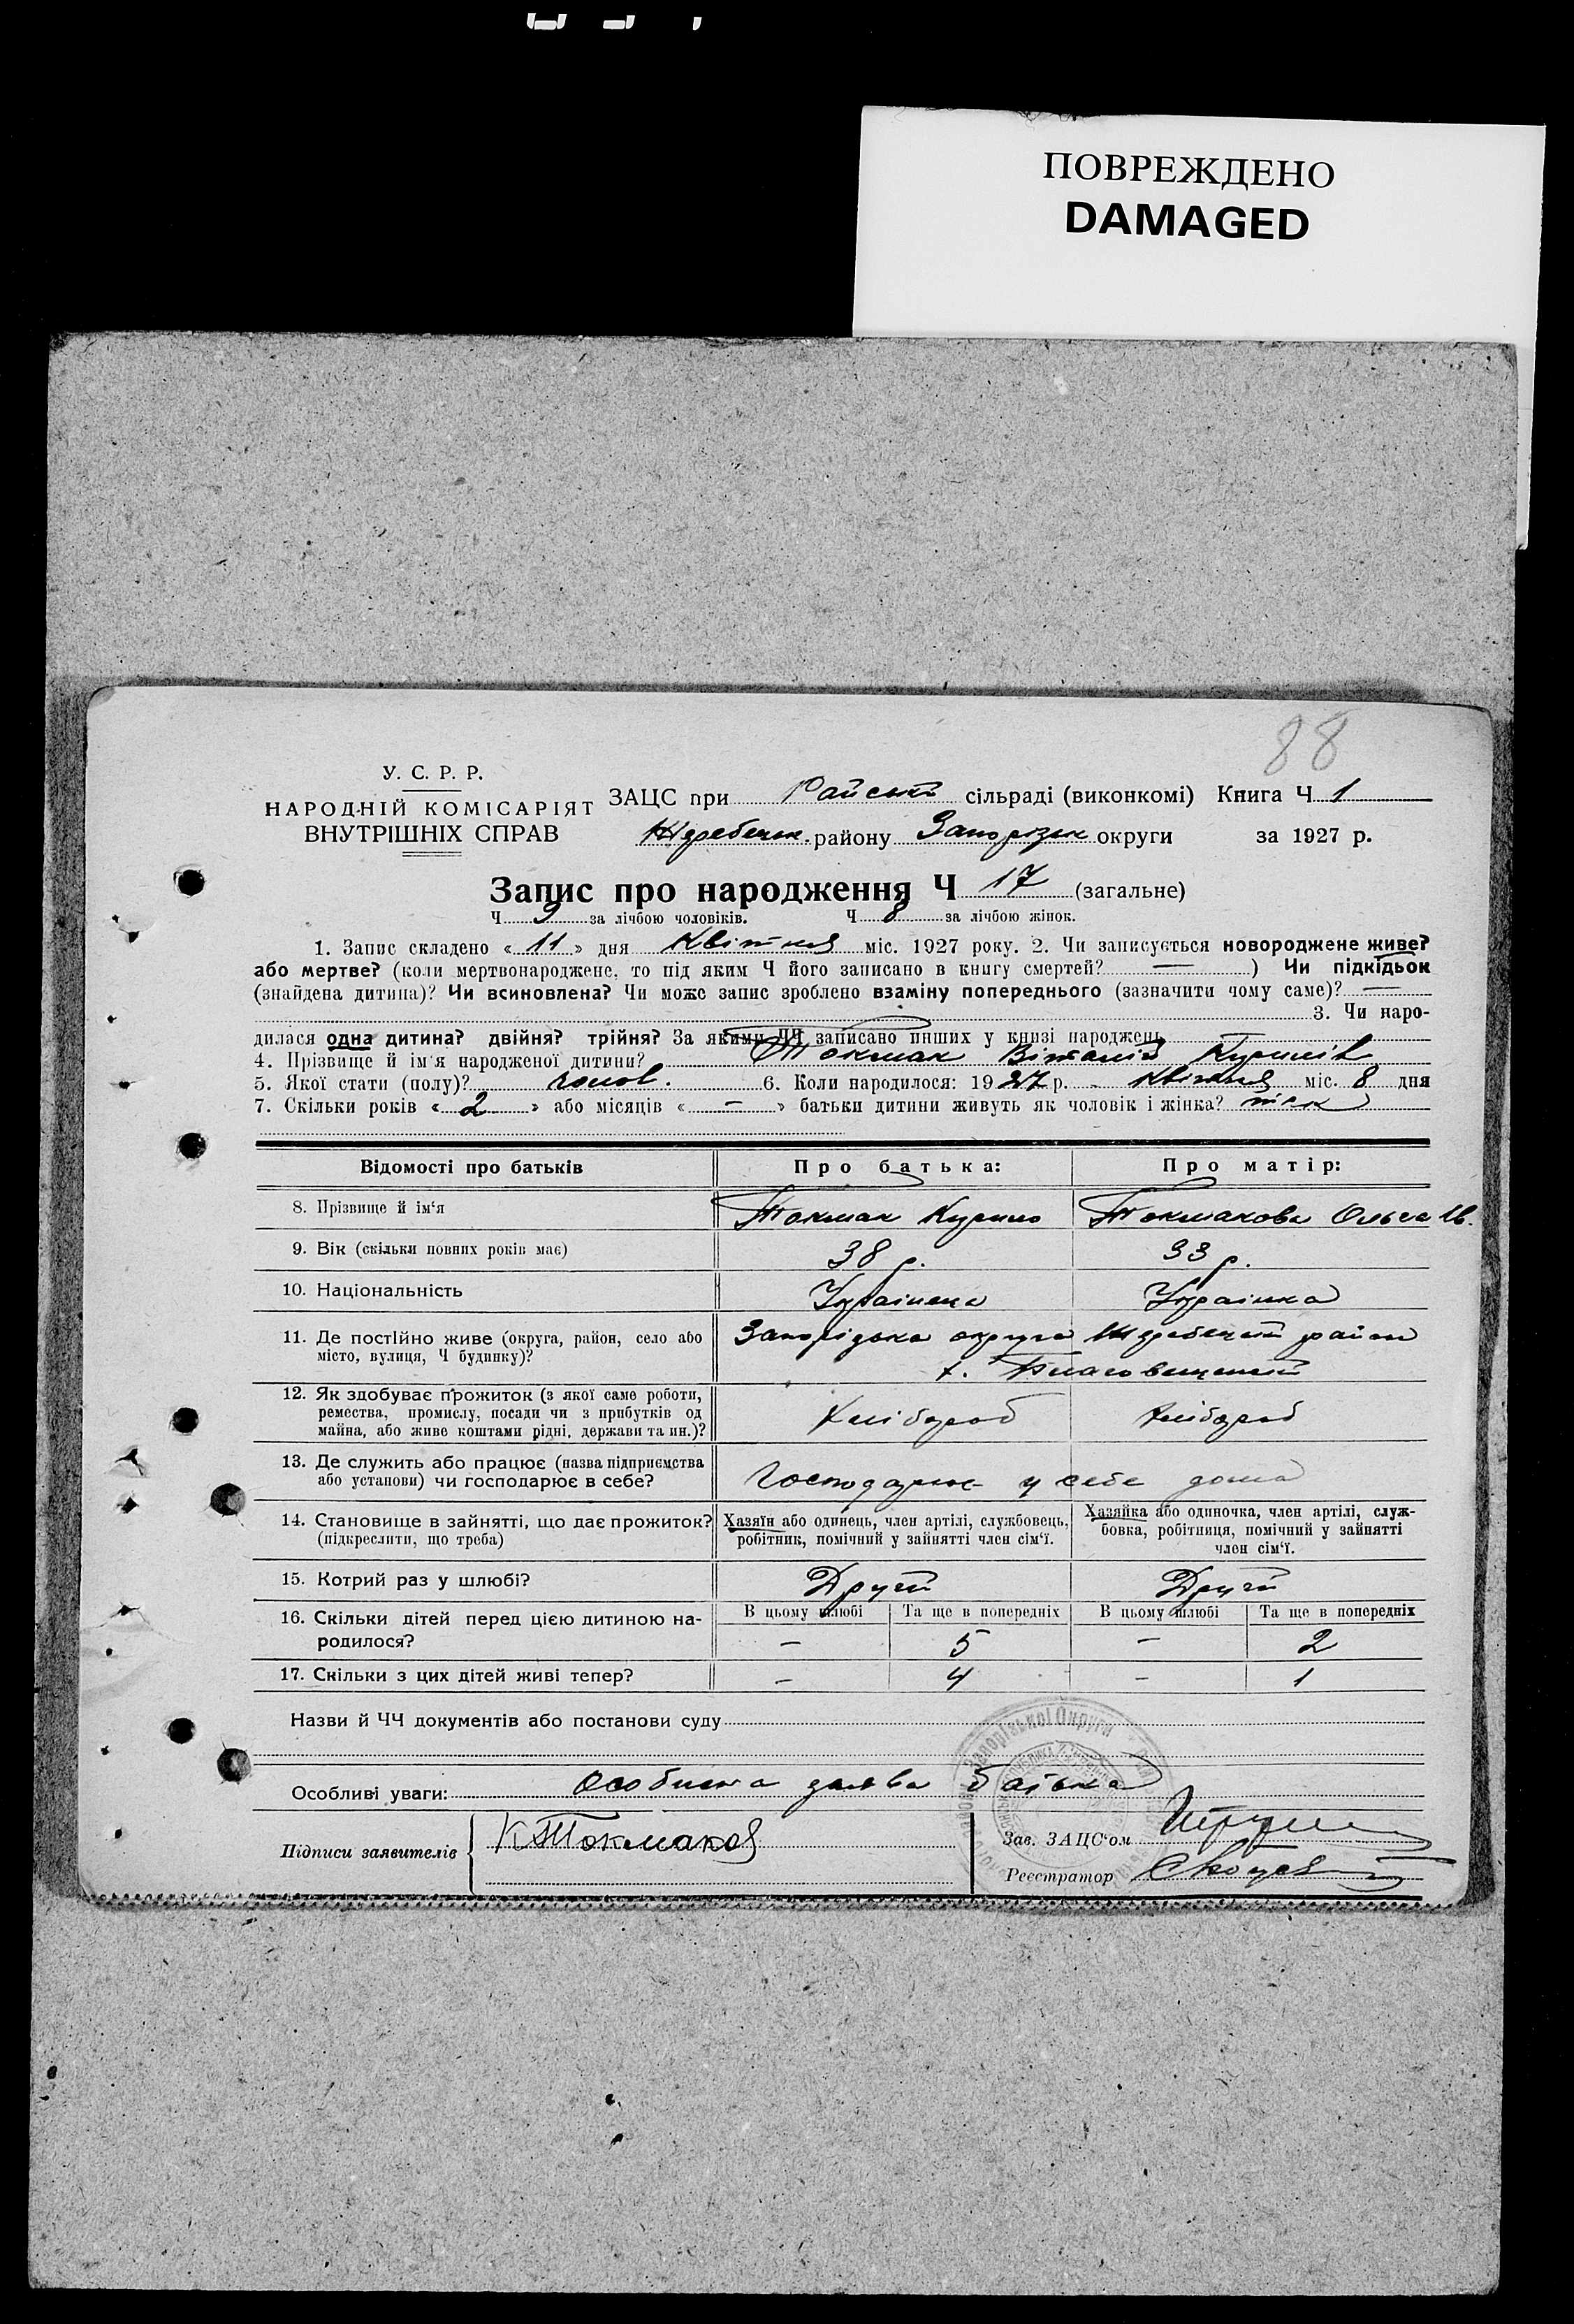 ПОВРЕЖДЕНО
DAMAGED
88
У. С. Р. Р.
НАРОДНІЙ КОМІСАРІЯТ
ВНУТРІШНІХ СПРАВ
ЗАЦС при Райській сільраді (виконкомі) Книга Ч 1
Жеребецьк. району Запорізьк округи за 1927 р.
Запис про народження Ч 17 (загальне)
Ч 9 за лічбою чоловіків. Ч 8 за лічбою жінок.
1. Запис складено « 11 » дня Квітня міс. 1927 року. 2. Чи записується новороджене живе?
або мертве? (коли мертвонароджене, то під яким Ч його записано в книгу смертей? — ) Чи підкідьок
(знайдена дитина)? Чи всиновлена? Чи може запис зроблено взаміну попереднього (зазначити чому саме)? —
3. Чи наро-
дилася одна дитина? двійня? трійня? За якими ЧЧ записано инших у книзі народжень
4. Прізвище й ім'я народженої дитини? Токмак Віталій Курилів
5. Якої стати (полу)? чолов. 6. Коли народилося: 1927 р. Квітня міс. 8 дня
7. Скільки років « 2 » або місяців « — » батьки дитини живуть як чоловік і жінка? так
Відомості про батьків Про батька: Про матір:
8. Прізвище й ім'я Токмак Курило Токмакова Ольга Ів.
9. Вік (скільки повних років має) 38 р. 33 р.
10. Національність Українець Українка
11. Де постійно живе (округа, район, село або місто, вулиця, Ч будинку)? Запорізька округа Жеребецький район
х.
12. Як здобуває прожиток (з якої саме роботи, ремества, промислу, посади чи з прибутків од майна, або живе коштами рідні, держави та ин.)? Хлібороб Хлібороб
13. Де служить або працює (назва підприємства або установи) чи господарює в себе? Господарює у себе дома
14. Становище в зайнятті, що дає прожиток? (підкреслити, що треба) Хазяїн або одинець, член артілі, службовець, робітник, помічний у зайнятті член сім'ї. Хазяйка або одиночка, член артілі, служ-бовка, робітниця, помічний у зайнятті член сім'ї.
15. Котрий раз у шлюбі? Другий Другий
16. Скільки дітей перед цією дитиною на-родилося? В цьому шлюбі Та ще в попередніх В цьому шлюбі Та ще в попередніх
— 5 — 2
17. Скільки з цих дітей живі тепер? — 4 — 1
Назви й ЧЧ документів або постанови суду
Особливі уваги: Особиста заява батька
Підписи заявителів К Токмаков
Зав. ЗАЦС'ом
Реєстратор